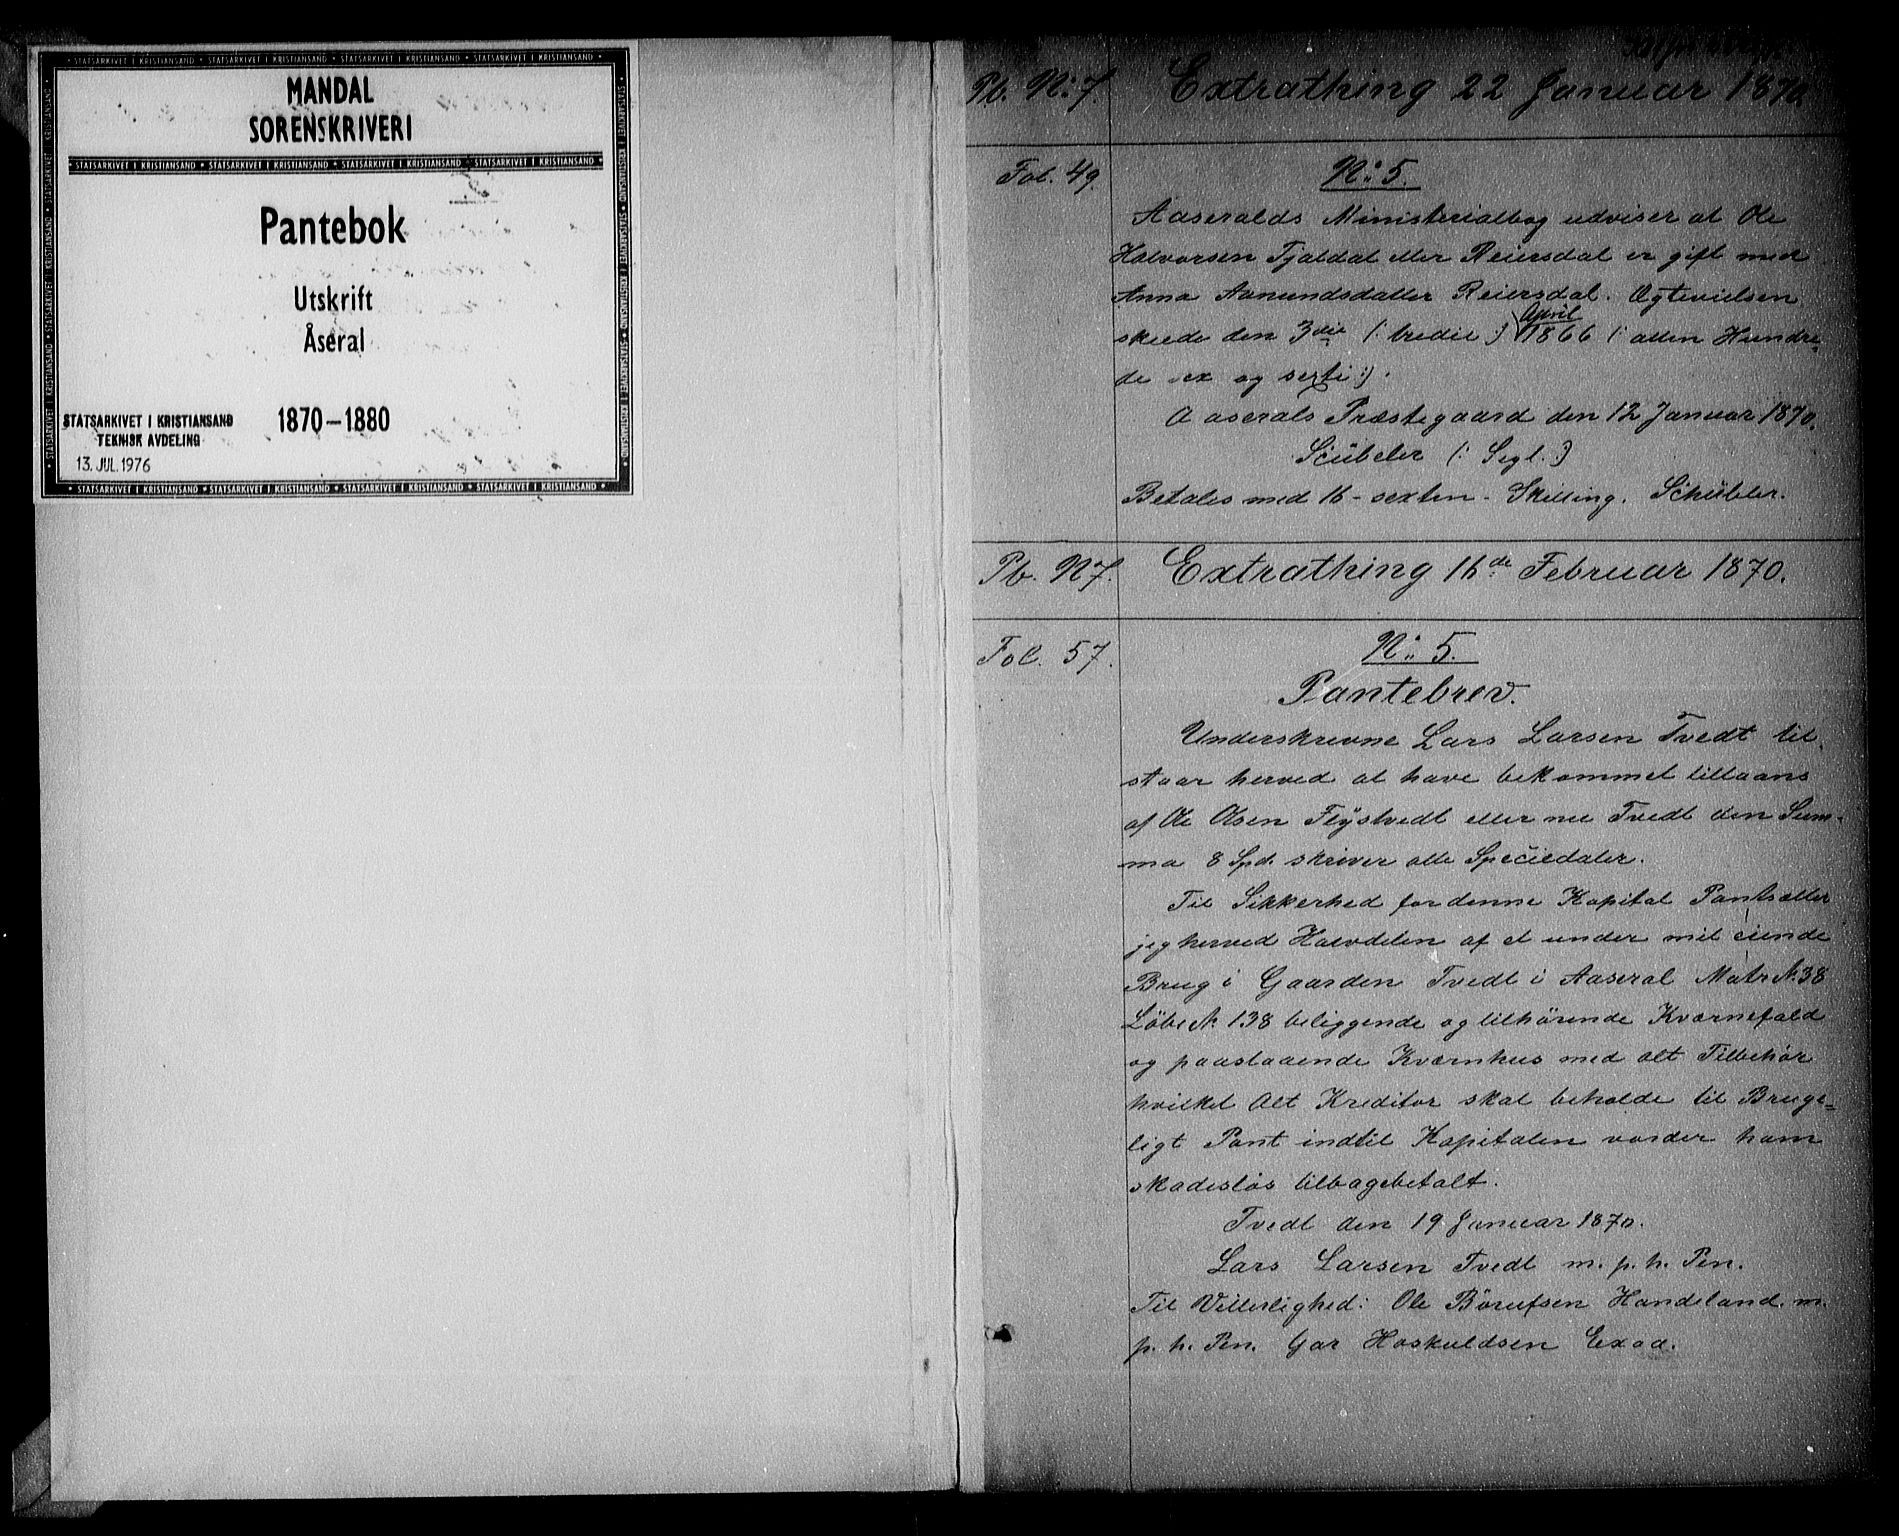 MANDAL
SORENSKRIVERI
Pantebok
Utskrift
Åseral
1870-1880
STATSARKIVET I KRISTIANSAND
TEKNISK AVDELING
13. JUL. 1976
Pb. No 7. Extrathing 22 Januar 1870.
Fol. 49. No 5.
Aaseralds Ministerialbog udviser at Ole
Halvorsen Tjaldal eller Reiersdal er gift med
Anna Aanundsdatter Reiersdal. Ægtevielsen
skeede den 3die (: tredie :) April 1866 (: atten Hundre-
de sex og sexti :).
Aaserals Præstegaard den 12 Januar 1870.
Scübeler (: Segl. :)
Betales med 16 - sexten - Skilling. Schübeler.
Pb. N 7. Extrathing 16de Februar 1870.
Fol. 57. No 5.
Pantebrev.
Underskrevne Lars Larsen Tvedt til-
staar herved at have bekommet tillaans
af Ole Olsen Fløstvedt eller nu Tvedt den Sum-
ma 8 Spd. skriver otte Speciedaler.
Til Sikkerhed for denne Kapital Pantsætter
jeg herved Halvdelen af et under mit eiende
Brug i Gaarden Tvedt i Aaseral Matr N. 38
Løbe N. 138 beliggende og tilhørende Kværnefald
og paastaaende Kværnhus med alt Tilbehør
hvilket Alt Kreditor skal beholde til Bruge-
ligt Pant indtil Kapitalen vorder ham
skadesløs tilbagebetalt.
Tvedt den 19 Januar 1870.
Lars Larsen Tvedt m. p. h. Pen.
Til Vitterlighed: Ole Børufsen Handeland m.
p. h. Pen. Gar Hoskuldsen Exaa.